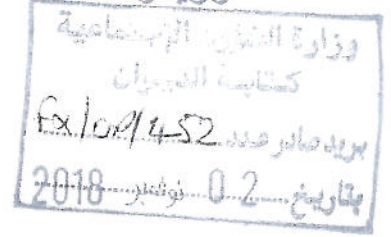 وزارة الشؤون الاجتماعية
كتابة الديوان
بريد صادر عدد Fx/OP/452
بتاريخ 0 2 نوفمبر 2018